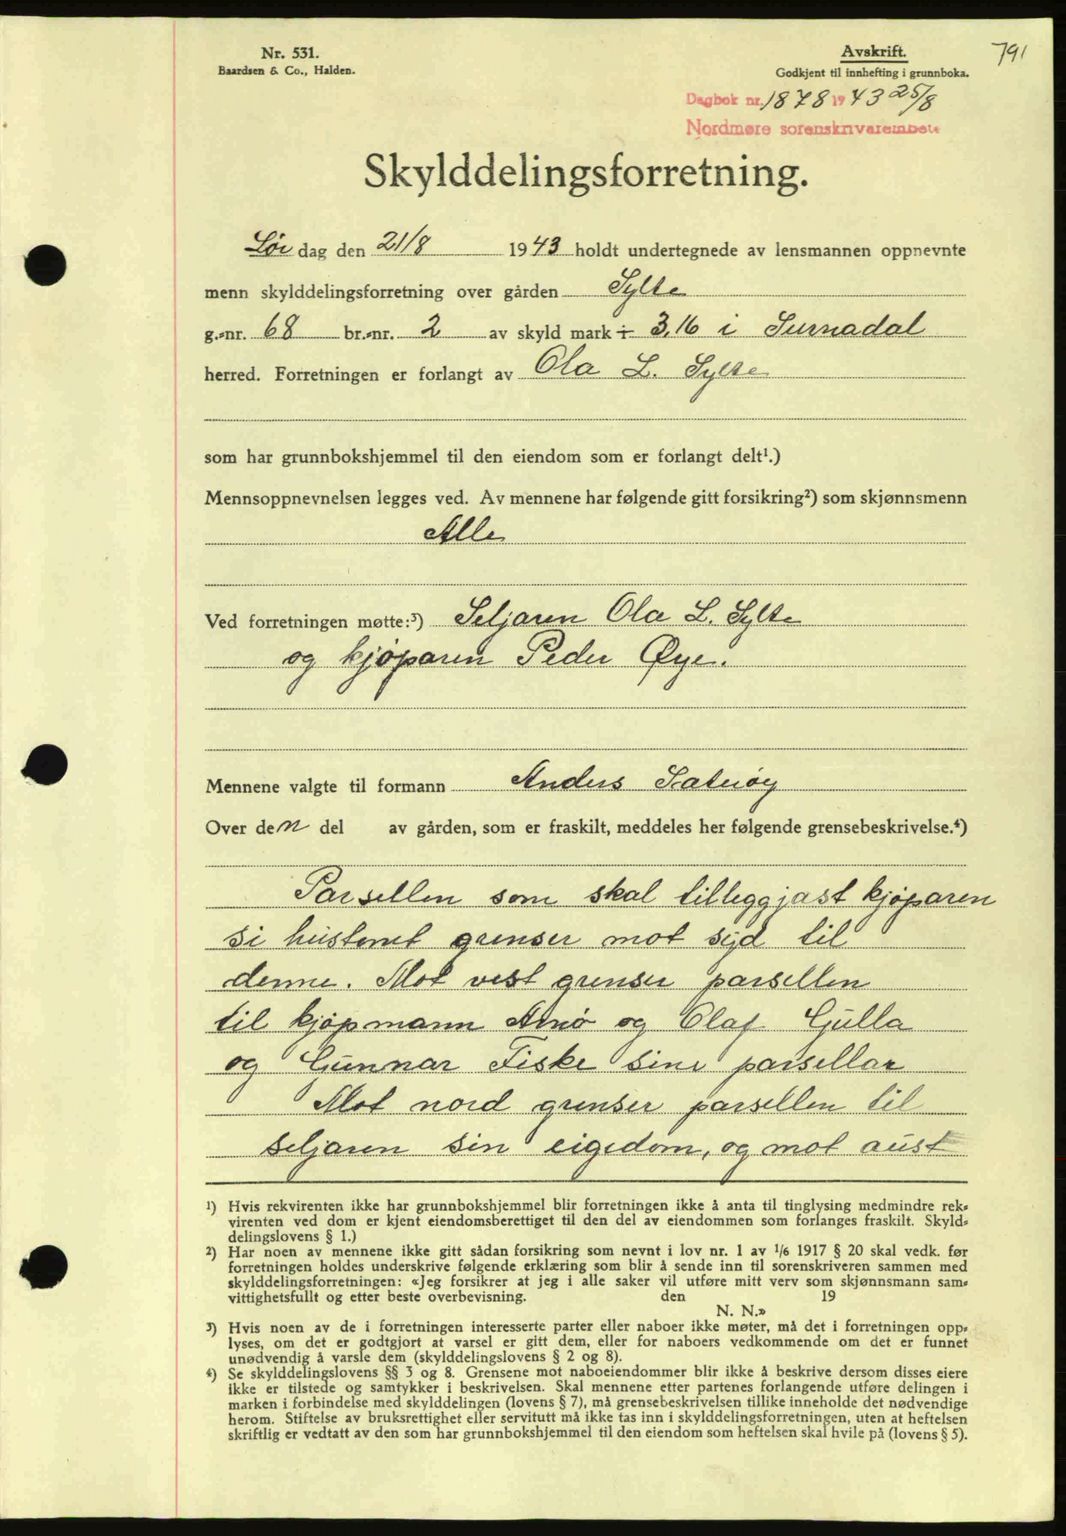 Nr. 531.
Baardsen & Co., Halden.
Avskrift.
Godkjent til innhefting i grunnboka.
791
Dagbok nr. 1878 1943 25/8
Nordmøre sorenskriverembete
Skylddelingsforretning.
Lør dag den 21/8 1943 holdt undertegnede av lensmannen oppnevnte
menn skylddelingsforretning over gården Sylte
g.=nr. 68 br.=nr. 2 av skyld mark ÷ 3,16 i Surnadal
herred. Forretningen er forlangt av Ola L. Sylte
som har grunnbokshjemmel til den eiendom som er forlangt delt¹.)
Mennsoppnevnelsen legges ved. Av mennene har følgende gitt forsikring²) som skjønnsmenn
Alle
Ved forretningen møtte:³) Seljaren Ola L. Sylte
og kjøparen Peder Øye.
Mennene valgte til formann Anders Sæterøy
Over den del av gården, som er fraskilt, meddeles her følgende grensebeskrivelse.⁴)
Parsellen som skal tilleggjast kjøparen
si hustomt grenser mot syd til
denne. Mot vest grenser parsellen
til kjøpmann Amø og Olaf Gulla
og Gunnar Fiske sine parsellar
Mot nord grenser parsellen til
seljaren sin eigedom, og mot aust
¹) Hvis rekvirenten ikke har grunnbokshjemmel blir forretningen ikke å anta til tinglysing medmindre rek=
virenten ved dom er kjent eiendomsberettiget til den del av eiendommen som forlanges fraskilt. Skyld=
delingslovens § 1.)
²) Har noen av mennene ikke gitt sådan forsikring som nevnt i lov nr. 1 av ¹/6 1917 § 20 skal vedk. før
forretningen holdes underskrive følgende erklæring som blir å sende inn til sorenskriveren sammen med
skylddelingsforretningen: «Jeg forsikrer at jeg i alle saker vil utføre mitt verv som skjønnsmann sam=
vittighetsfullt og etter beste overbevisning. den 19
N. N.»
³) Hvis noen av de i forretningen interesserte parter eller naboer ikke møter, må det i forretningen opp=
lyses, om det er godtgjort at varsel er gitt dem, eller for naboers vedkommende om det er funnet
unødvendig å varsle dem (skylddelingslovens § 2 og 8).
⁴) Se skylddelingslovens §§ 3 og 8. Grensene mot naboeiendommer blir ikke å beskrive dersom disses eiere
ikke er tilstede og samtykker i beskrivelsen. Skal mennene etter partenes forlangende utføre delingen i
marken i forbindelse med skylddelingen (lovens § 7), må grensebeskrivelsen tillike inneholde det nødvendige
herom. Stiftelse av bruksrettighet eller servitutt må ikke tas inn i skylddelingsforretningen, uten at heftelsen
skriftlig er vedtatt av den som har grunnbokshjemmel til den eiendom som heftelsen skal hvile på (lovens § 5).